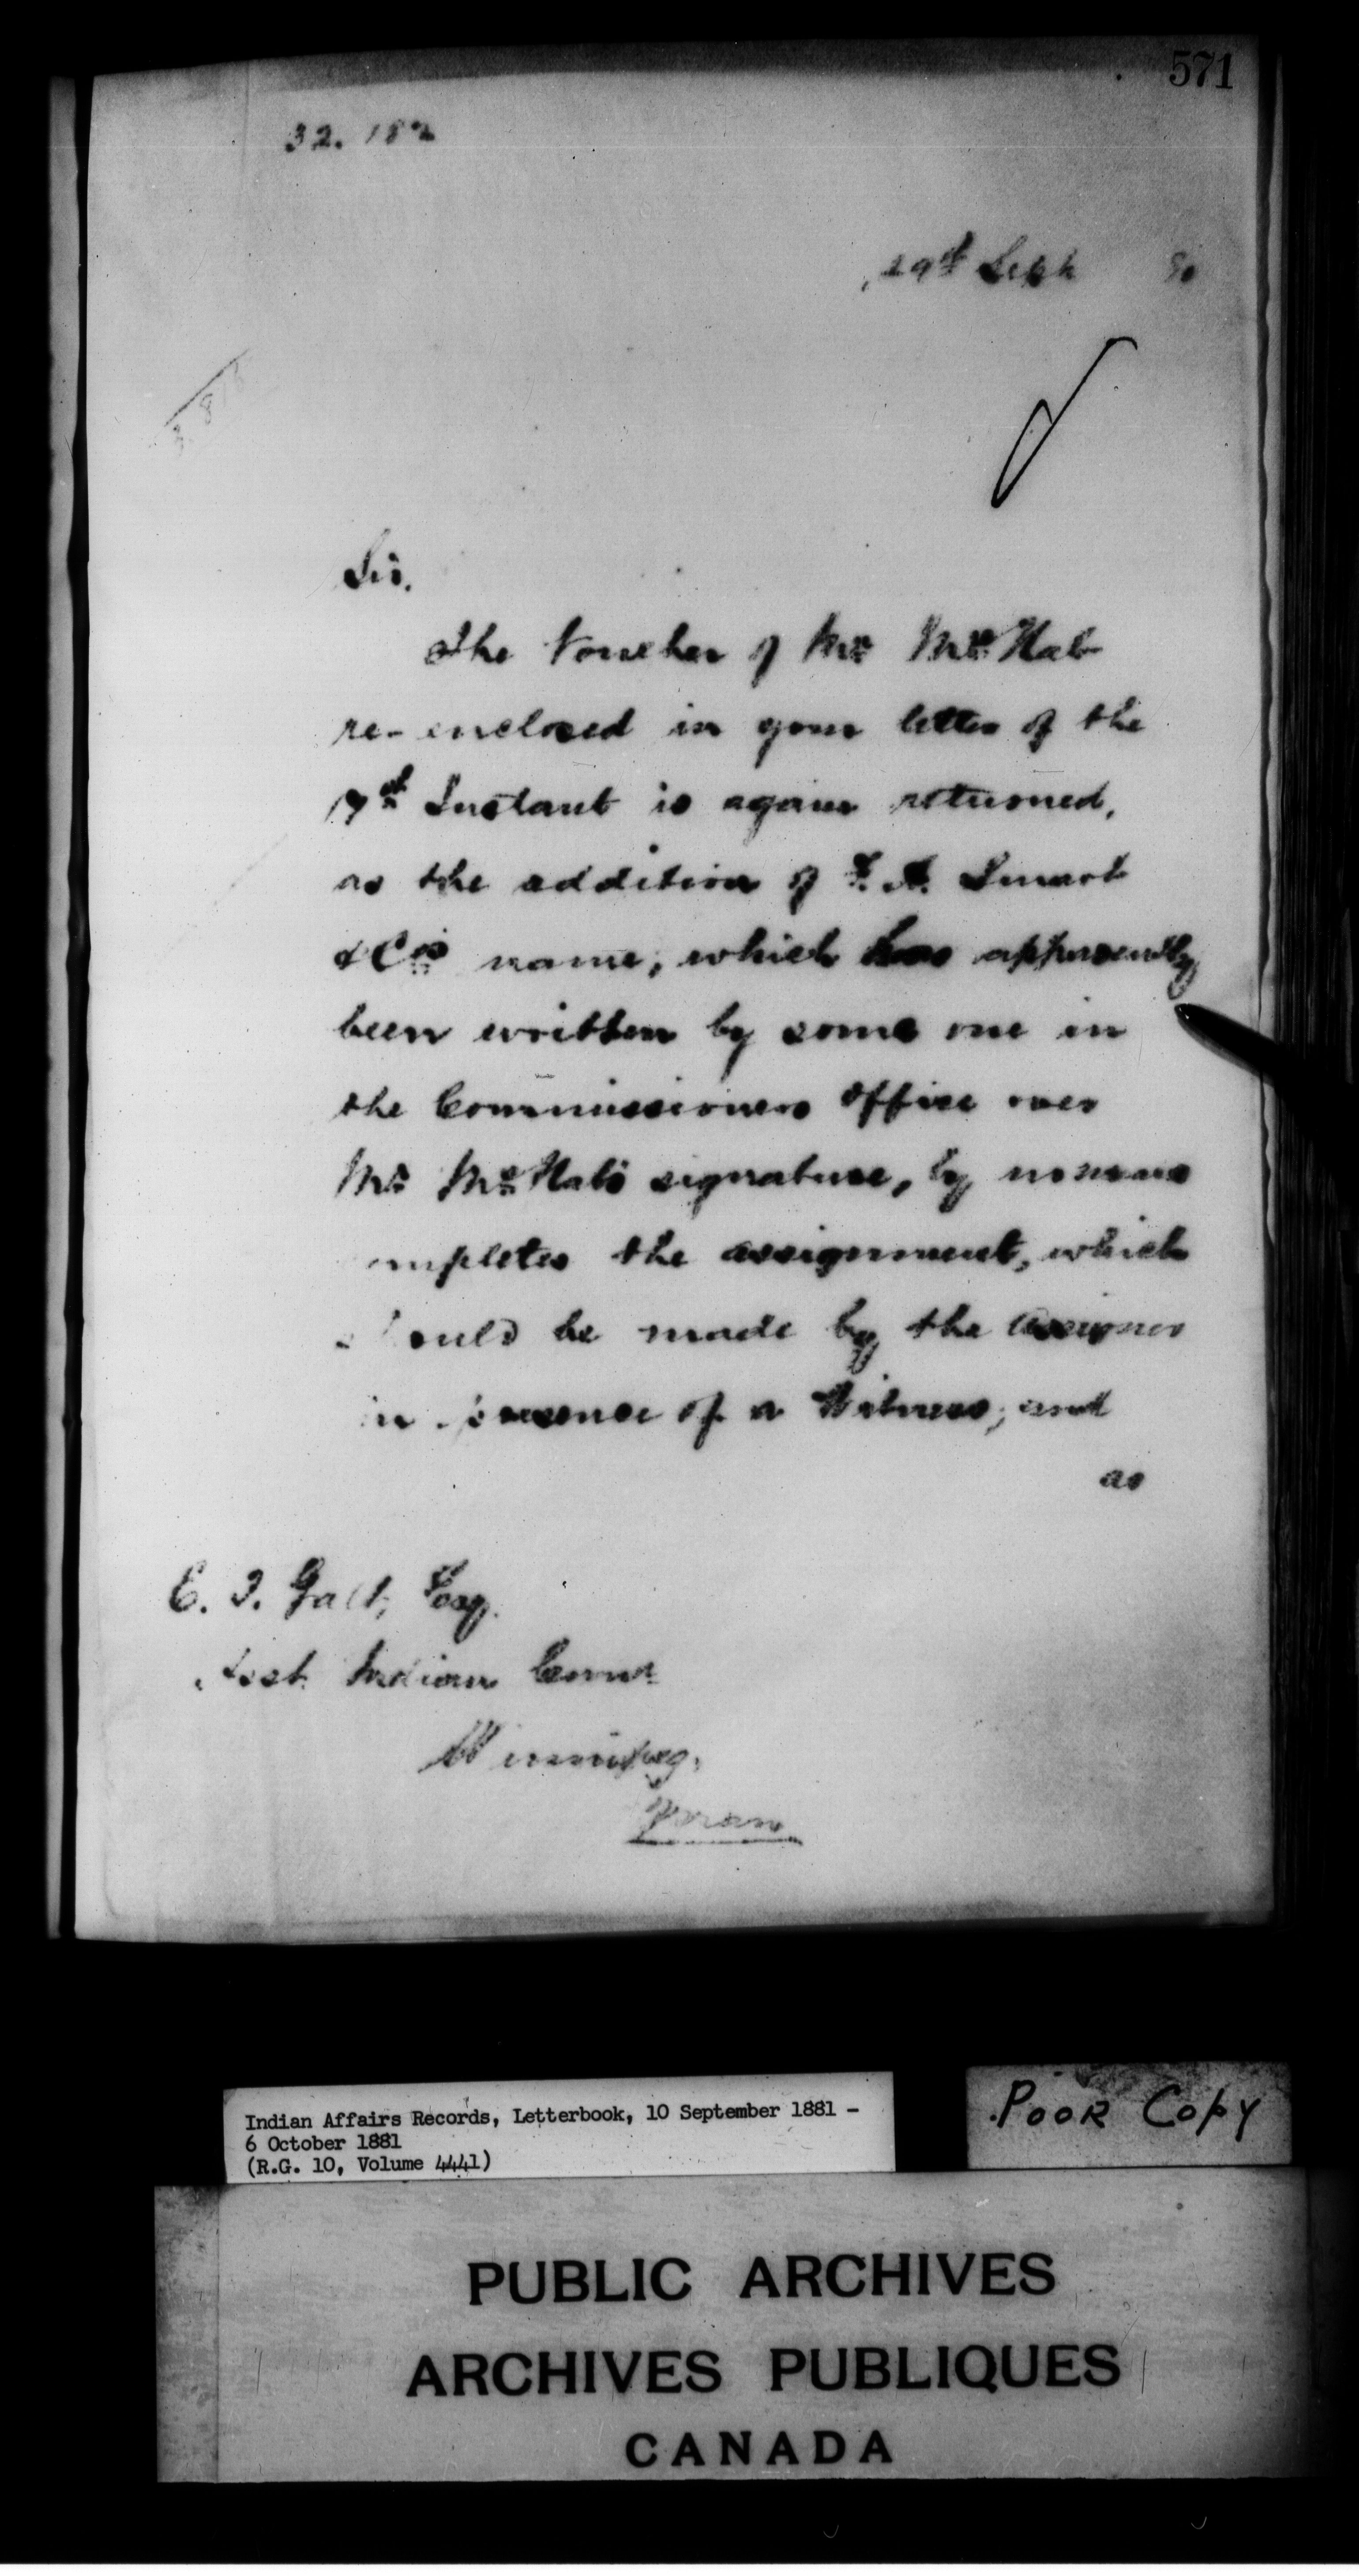 571
32. 182
29th Sept
Sir.
The Voucher of Mr McNab
re-enclosed in your letter of the
17th Instant is again returned,
as the addition of A. Smart
& Co's name, which has apparently
been written by some one in
the Commissioners Office over
Mr McNab's signature, by no means
ompletes the assignment, which
should be made by the Assignor
in presence of a Witness, and
as
E. T. Galt, Esq.
Asst. Indian Comr
Winnipeg.
Indian Affairs Records, Letterbook, 10 September 1881 -
6 October 1881
(R.G. 10, Volume 4441)
POOR COPY
PUBLIC ARCHIVES
ARCHIVES PUBLIQUES
CANADA